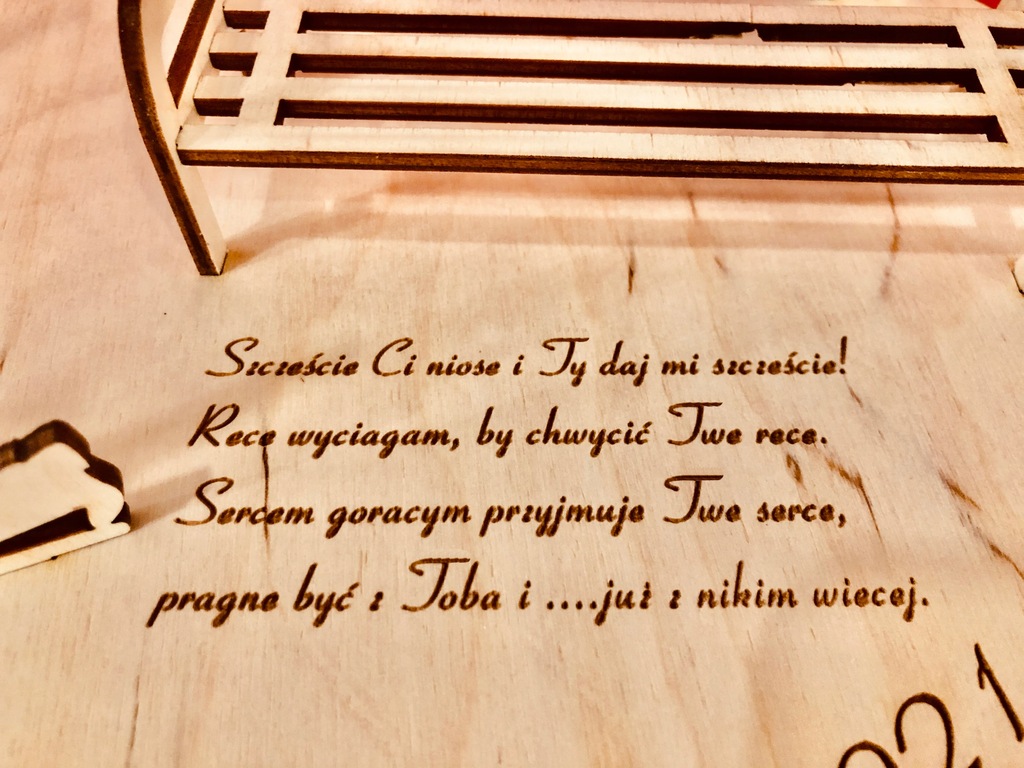 Szczeście Ci niose i Ty daj mi szczeście!
Rece wyciagam, by chwycić Twe rece.
Sercem goracym przyjmuje Twe serce,
pragne być z Toba i ....już z nikim wiecej.
021